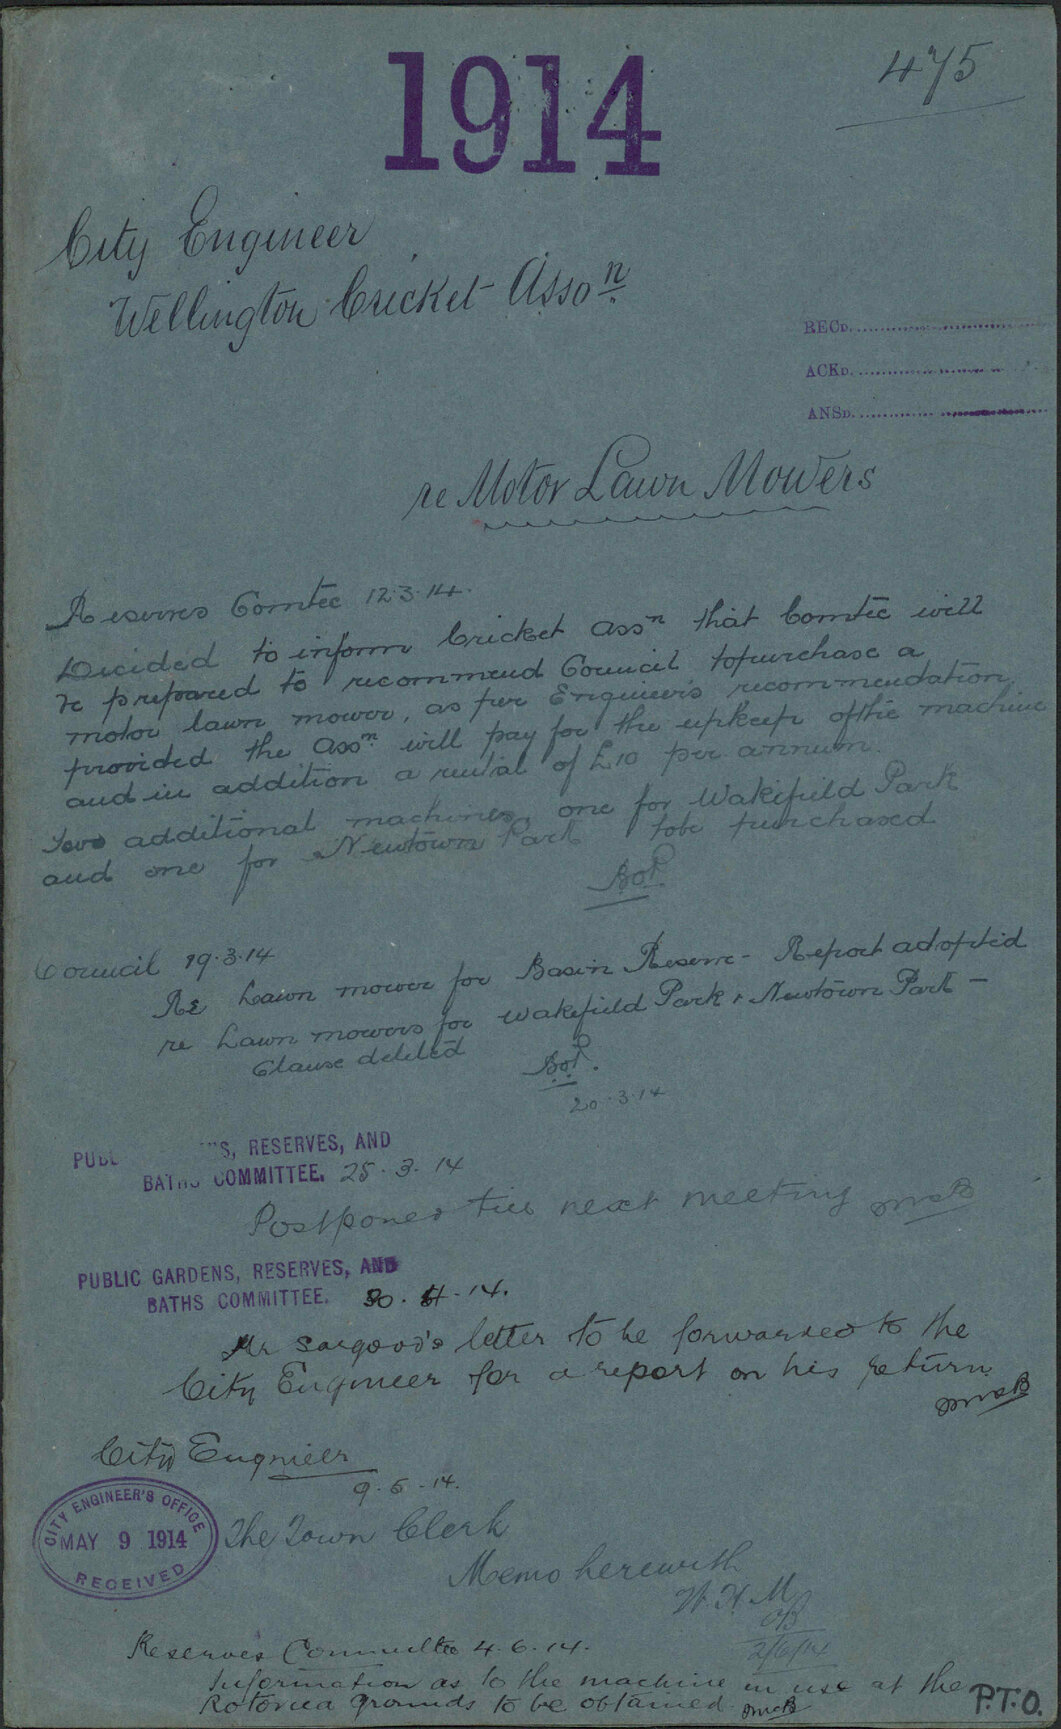 475
1914
City Engineer
Wellington Cricket Asso<sup>n</sup>.
RECD.
ACKD.
ANSD.
re Motor Lawn Mowers
Reserves Comtee 12.3.14.
Decided to inform Cricket Ass<sup>n</sup> that Comtee will
be prepared to recommend Council to purchase a
motor lawn mower, as per Engineer's recommendation,
provided the Ass<sup>n</sup>. will pay for the upkeep of the machine
and in addition a rental of £10 per annum.
Two additional machines, one for Wakefield Park
and one for Newtown Park to be purchased
Council 19.3.14
Re Lawn mower for Basin Reserve - Report adopted
re Lawn mowers for Wakefield Park & Newtown Park -
Clause deleted
20.3.14
PUBL S, RESERVES, AND
BATHS COMMITTEE. 25.3.14
Postponed till next meeting
PUBLIC GARDENS, RESERVES, AND
BATHS COMMITTEE. 30.4.14.
Mr Sargood's letter to be forwarded to the
City Engineer for a report on his return.
City Engineer
9.5.14.
CITY ENGINEER'S OFFICE
MAY 9 1914
RECEIVED
The Town Clerk
Memo herewith
W.H.M
2/6/14
Reserves Committee 4.6.14.
Information as to the machine in use at the
Rotorua grounds to be obtained.
P.T.O.